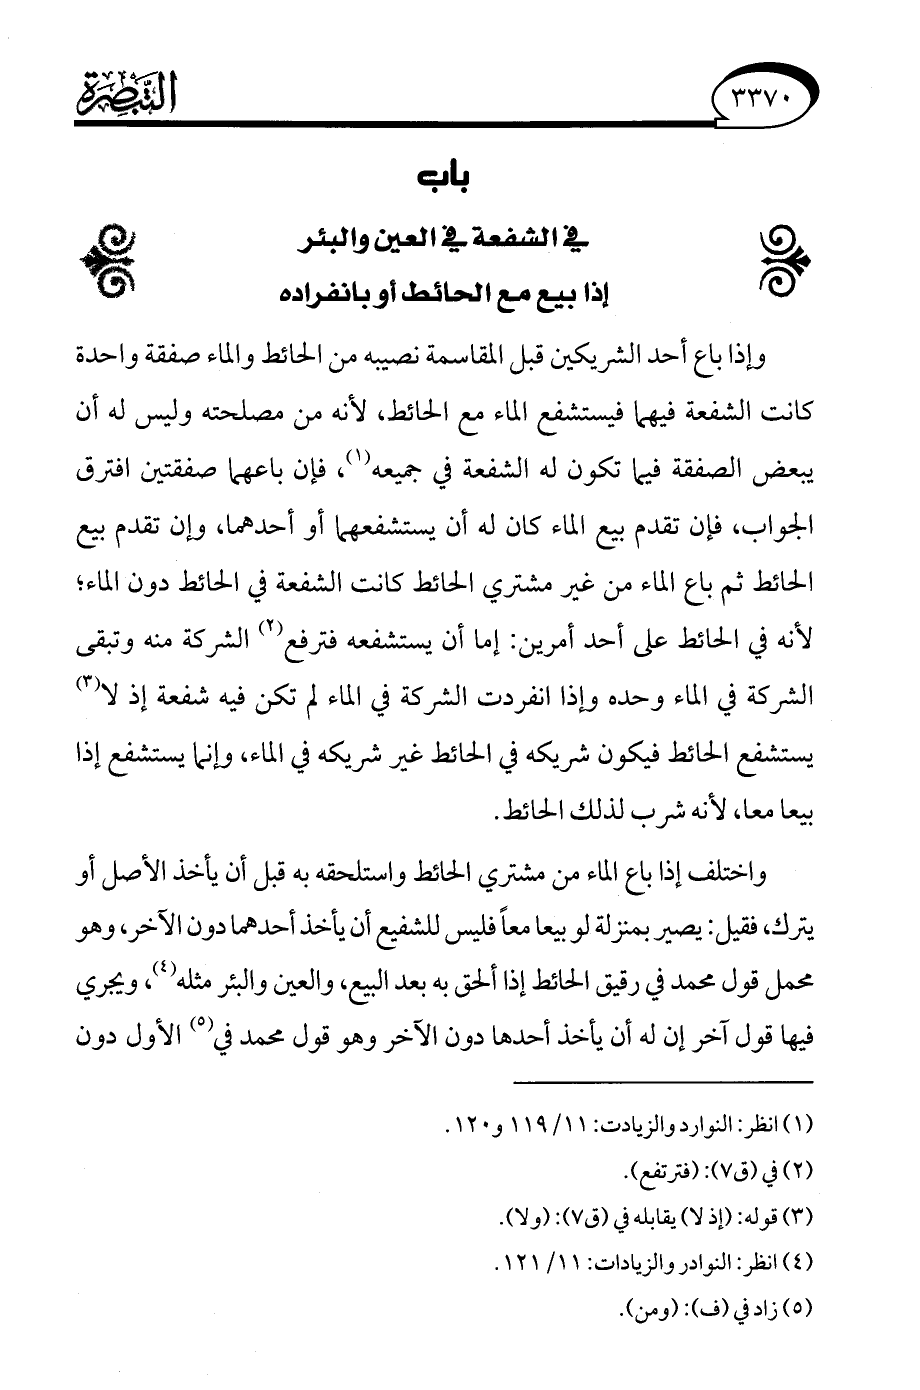 التبصرة
٣٣٧٠
باب
في الشفعة في العين والبئر
إذا بيع مع الحائط أو بانفراده
وإذا باع أحد الشريكين قبل المقاسمة نصيبه من الحائط والماء صفقة واحدة
كانت الشفعة فيهما فيستشفع الماء مع الحائط، لأنه من مصلحته وليس له أن
يبعض الصفقة فيما تكون له الشفعة في جميعه(١)، فإن باعهما صفقتين افترق
الجواب، فإن تقدم بيع الماء كان له أن يستشفعهما أو أحدهما، وإن تقدم بيع
الحائط ثم باع الماء من غير مشتري الحائط كانت الشفعة في الحائط دون الماء؛
لأنه في الحائط على أحد أمرين: إما أن يستشفعه فترفع(٢) الشركة منه وتبقى
الشركة في الماء وحده وإذا انفردت الشركة في الماء لم تكن فيه شفعة إذ لا(٣)
يستشفع الحائط فيكون شريكه في الحائط غير شريكه في الماء، وإنما يستشفع إذا
بيعا معا، لأنه شرب لذلك الحائط.
واختلف إذا باع الماء من مشتري الحائط واستلحقه به قبل أن يأخذ الأصل أو
يترك، فقيل: يصير بمنزلة لو بيعا معاً فليس للشفيع أن يأخذ أحدهما دون الآخر، وهو
محمل قول محمد في رقيق الحائط إذا ألحق به بعد البيع، والعين والبئر مثله(٤)، ويجري
فيها قول آخر إن له أن يأخذ أحدها دون الآخر وهو قول محمد في(٥) الأول دون
(١) انظر: النوارد والزيادت: ١١/ ١١٩ و١٢٠.
(٢) في (ق٧): (فترتفع).
(٣) قوله: (إذ لا) يقابله في (ق٧): (ولا).
(٤) انظر: النوادر والزيادات: ١١/ ١٢١.
(٥) زاد في (ف): (ومن).